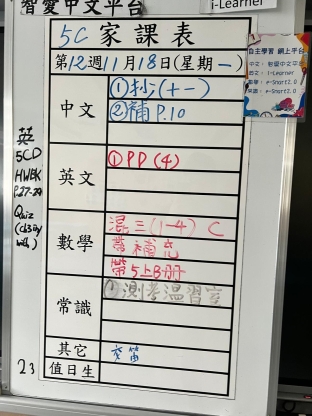 智愛中文平台
i-Learner
5C 家課表
第12週11月18日(星期一)
中文
①抄(十一)
②補 P.10
英文
①PP(4)
數學
混三(1-4) C
帶補充
帶5上B冊
常識
①測考溫習室
其它
交笛
值日生
23
英
5CD
HWBK
P.27-29
Quiz
自主學習 網上平台
中文: 智愛中文平台
英文: i-Learner
數學: e-Smart2.0
常識: e-Smart2.0